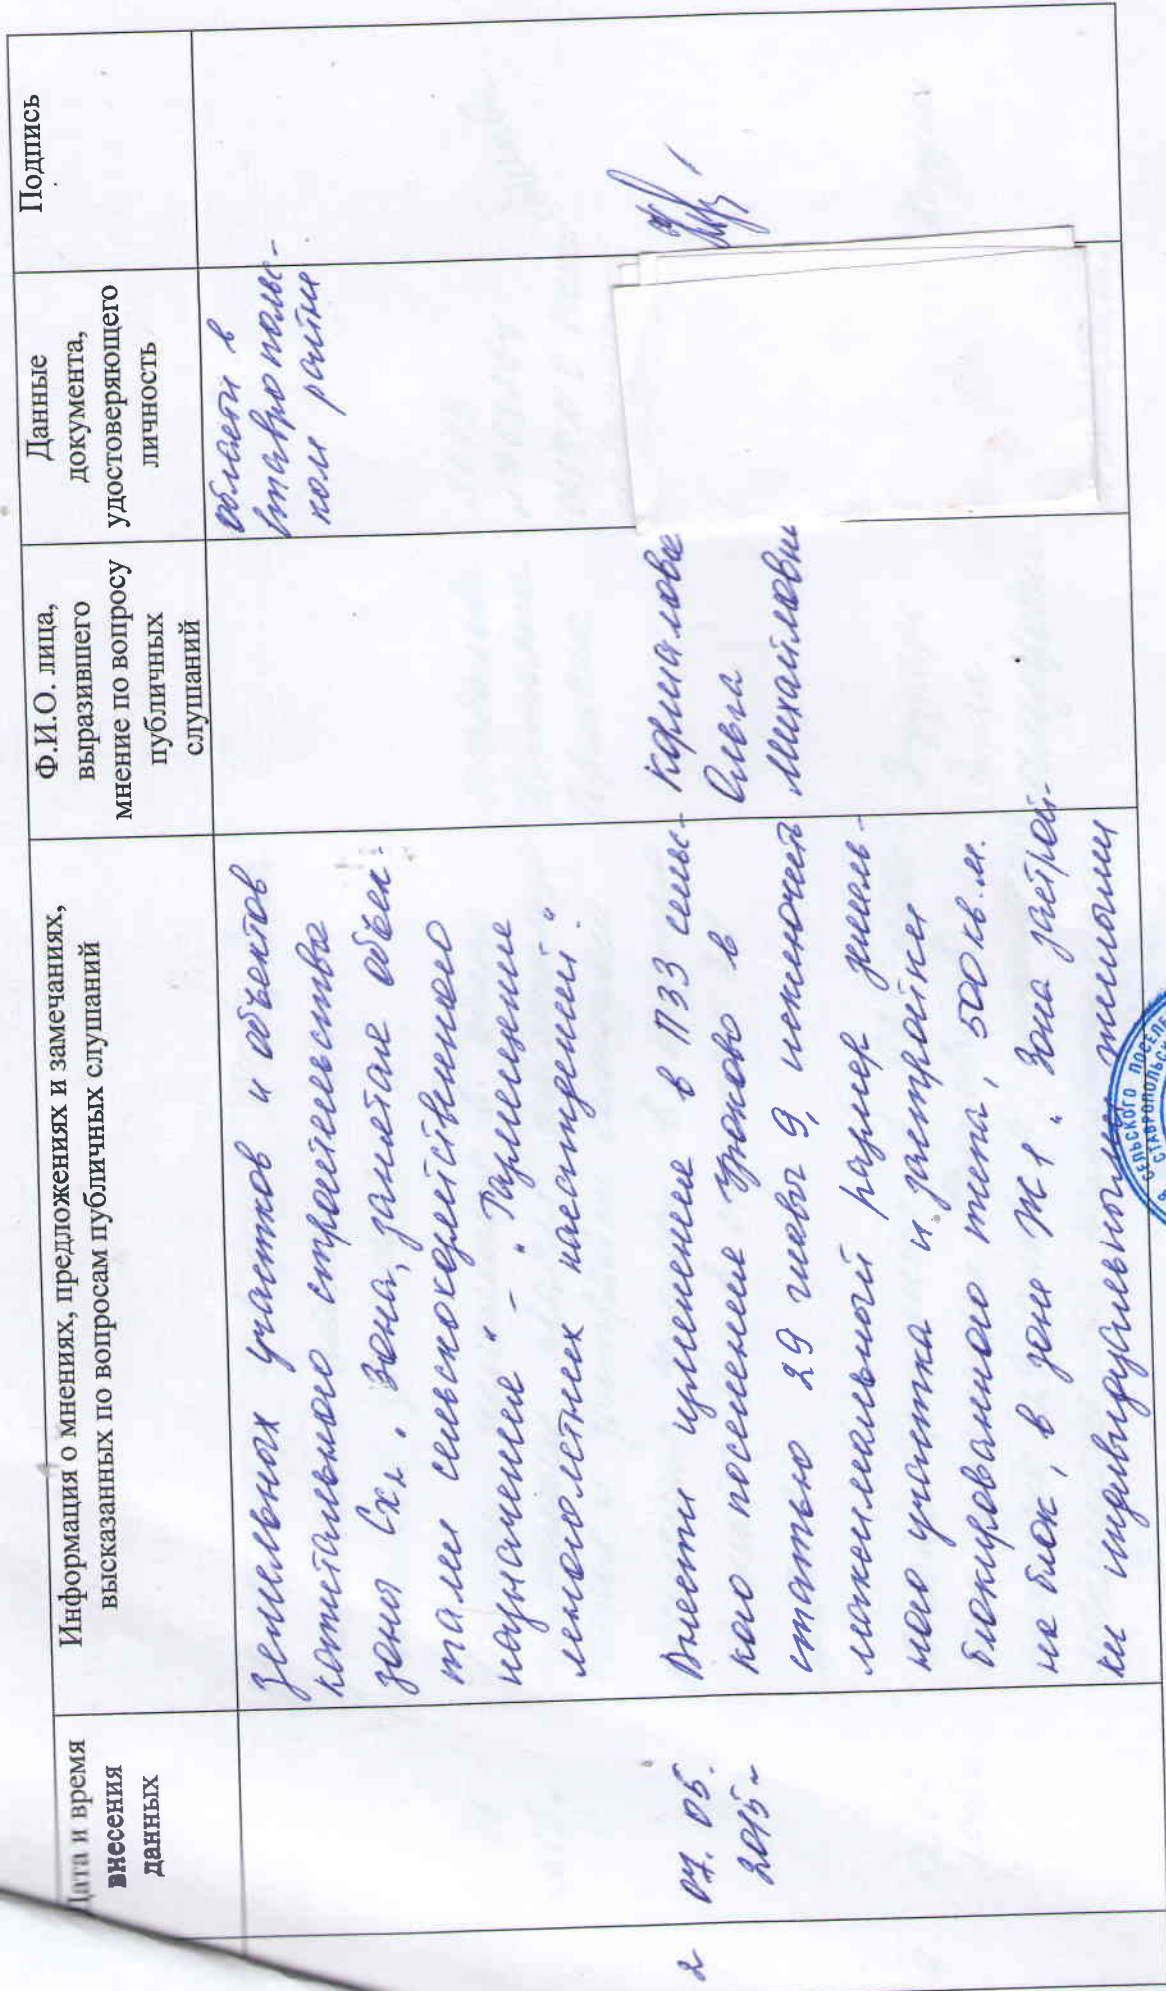 Дата и время
внесения
данных
Информация о мнениях, предложениях и замечаниях,
высказанных по вопросам публичных слушаний
Ф.И.О. лица,
выразившего
мнение по вопросу
публичных
слушаний
Данные
документа,
удостоверяющего
личность
Подпись
земельных участков и объектов
капитального строительства
зоны Сх2. Зона, занятая объек-
тами сельскохозяйственного
назначения - "Размещение
многолетних насаждений."
области в
Ставрополье-
ком районе
2
07. 05.
2015г
Внести изменение в ПЗЗ сельс-
кого поселение Узюково в
статью 29 главы 9, исключить
максимальный размер земель-
ного участка и застройки
блокированного типа, 500 кв.м.
на блок, в зоне Ж1 "Зона застрой-
ки индивидуальными жилыми
Ольга
Михайловна
СЕЛЬСКОГО ПОСЕЛ
СТАВРОПОЛЬСК